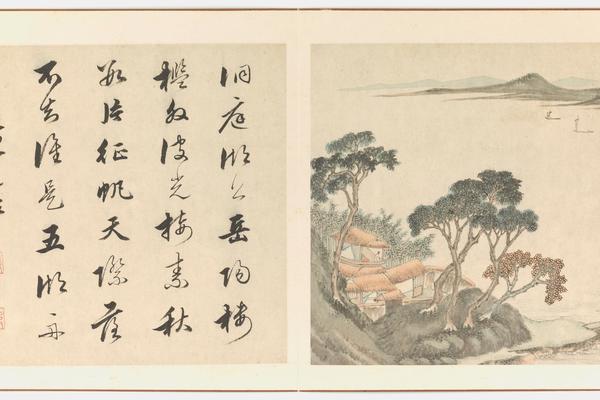 洞庭湖上岳陽樓
檻外波光接素秋
數片征帆天際落
不知誰是五湖舟